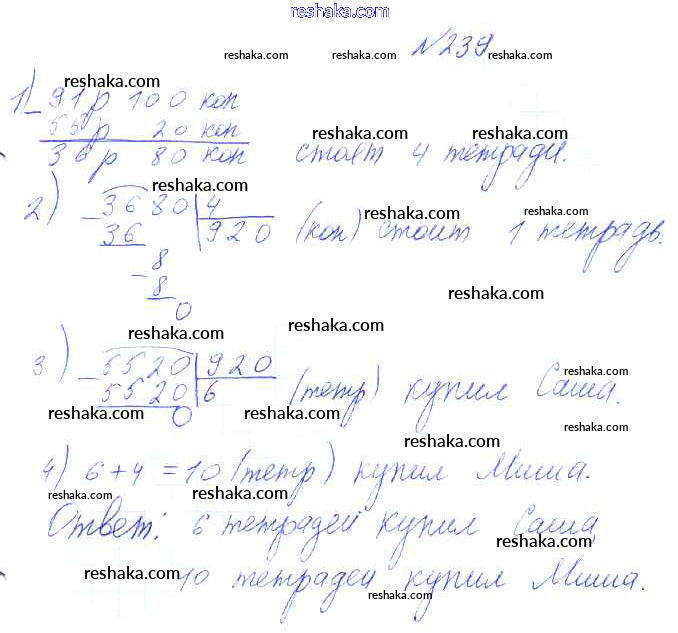 reshaka.com
№239
reshaka.com reshaka.com reshaka.com
reshaka.com
1) - 91 р 100 коп
55 р 20 коп
reshaka.com reshaka.com
36 р 80 коп стоят 4 тетради.
reshaka.com
2) - 3680 | 4
reshaka.com
36 | 920 (коп) стоит 1 тетрадь.
- 8
8
reshaka.com
0
reshaka.com reshaka.com
3) - 5520 | 920
reshaka.com
5520 | 6 (тетр) купил Саша.
reshaka.com reshaka.com
0
reshaka.com
reshaka.com
4) 6 + 4 = 10 (тетр) купил Миша.
reshaka.com reshaka.com
Ответ: 6 тетрадей купил Саша,
reshaka.com
reshaka.com
10 тетрадей купил Миша.
reshaka.com